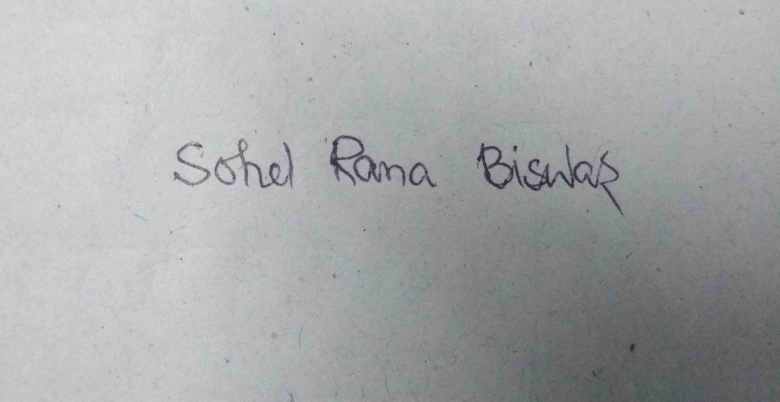 Sohel Rana Biswas